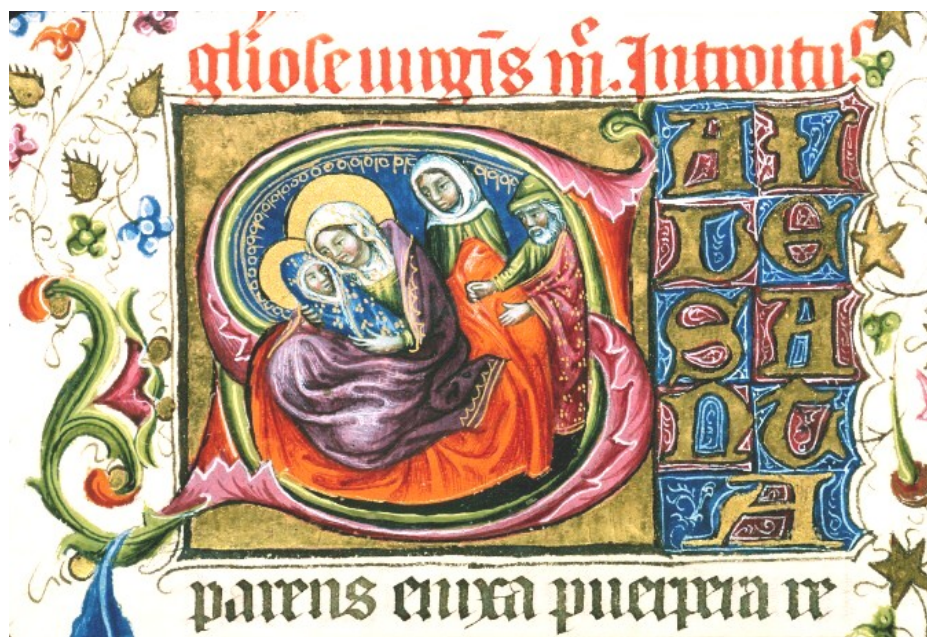 gliose uirgīs mͤ. Introitus.
S AL
VE
SA
NCT
A
parens enixa puerpera re